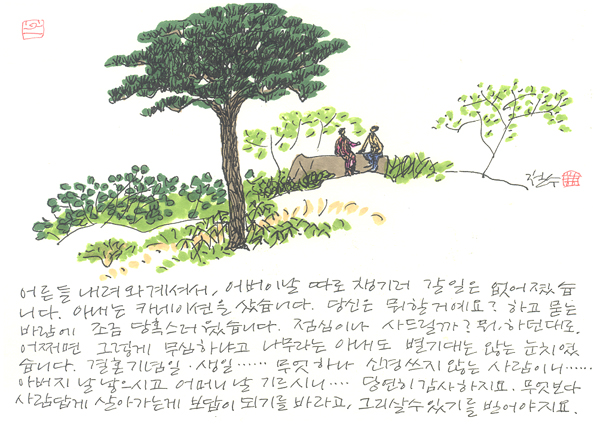 철수
어른들 내려와계셔서, 어버이날 따로 챙기러 갈 일은 없어졌습
니다. 아내는 카네이션을 샀습니다. 당신은 뭐할거예요? 하고 묻는
바람에 조금 당혹스러웠습니다. 점심이나 사드릴까? 뭐, 하던대로.
어쩌면 그렇게 무심하냐고 나무라는 아내도 별기대는 않는 눈치였
습니다. 결혼기념일·생일…… 무엇 하나 신경쓰지 않는 사람이니……
아버지 날 낳으시고 어머니 날 기르시니…. 당연히 감사하지요. 무엇보다
사람답게 살아가는게 보답이 되기를 바라고, 그리살수있기를 빌어야지요.